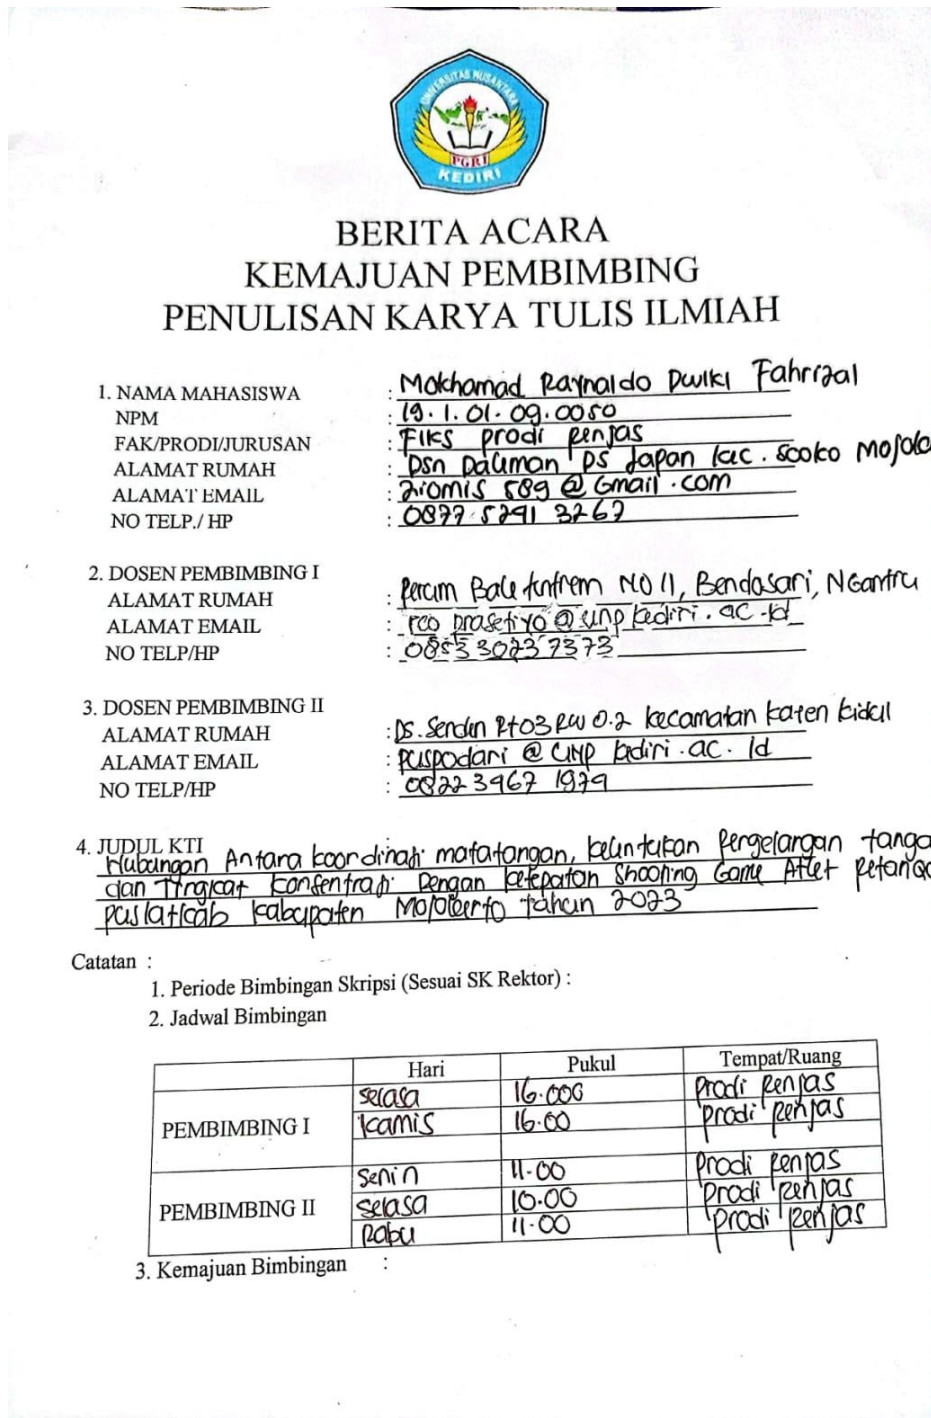 UNIVERSITAS NUSANTARA
PGRI
KEDIRI
BERITA ACARA
KEMAJUAN PEMBIMBING
PENULISAN KARYA TULIS ILMIAH
1. NAMA MAHASISWA : Mokhamad Raynaldo Dwiki Fahrizal
NPM : 19.1.01.09.0050
FAK/PRODI/JURUSAN : FIKS prodi Penjas
ALAMAT RUMAH : Dsn Daliman DS Japan kec. Sooko Mojok
ALAMAT EMAIL : ziomis 589 @ Gmail.com
NO TELP./ HP : 0877 5291 3267
2. DOSEN PEMBIMBING I
ALAMAT RUMAH : Perum Bale tuntrem NO 11, Bendosari, NGantru
ALAMAT EMAIL : reo prasetiyo @ unp kediri.ac.id
NO TELP/HP : 085330237373
3. DOSEN PEMBIMBING II
ALAMAT RUMAH : Ds. Senden Rt 03 RW 0.2 kecamatan kayen kidul
ALAMAT EMAIL : puspodari @ UNP kediri.ac.id
NO TELP/HP : 0822 3967 1979
4. JUDUL KTI
Hubungan Antara koordinasi matatangan, kelentukan Pergelangan tanga
dan Tingkat konsentrasi Dengan ketepatan Shooting Game Atlet Petanq
puslatcab kabupaten Mojokerto tahun 2023
Catatan :
1. Periode Bimbingan Skripsi (Sesuai SK Rektor) :
2. Jadwal Bimbingan
Hari Pukul Tempat/Ruang
PEMBIMBING I
selasa 16.000 Prodi Penjas
kamis 16.00 Prodi Penjas
PEMBIMBING II
Senin 11.00 Prodi Penjas
Selasa 10.00 Prodi Penjas
Rabu 11.00 Prodi Penjas
3. Kemajuan Bimbingan :